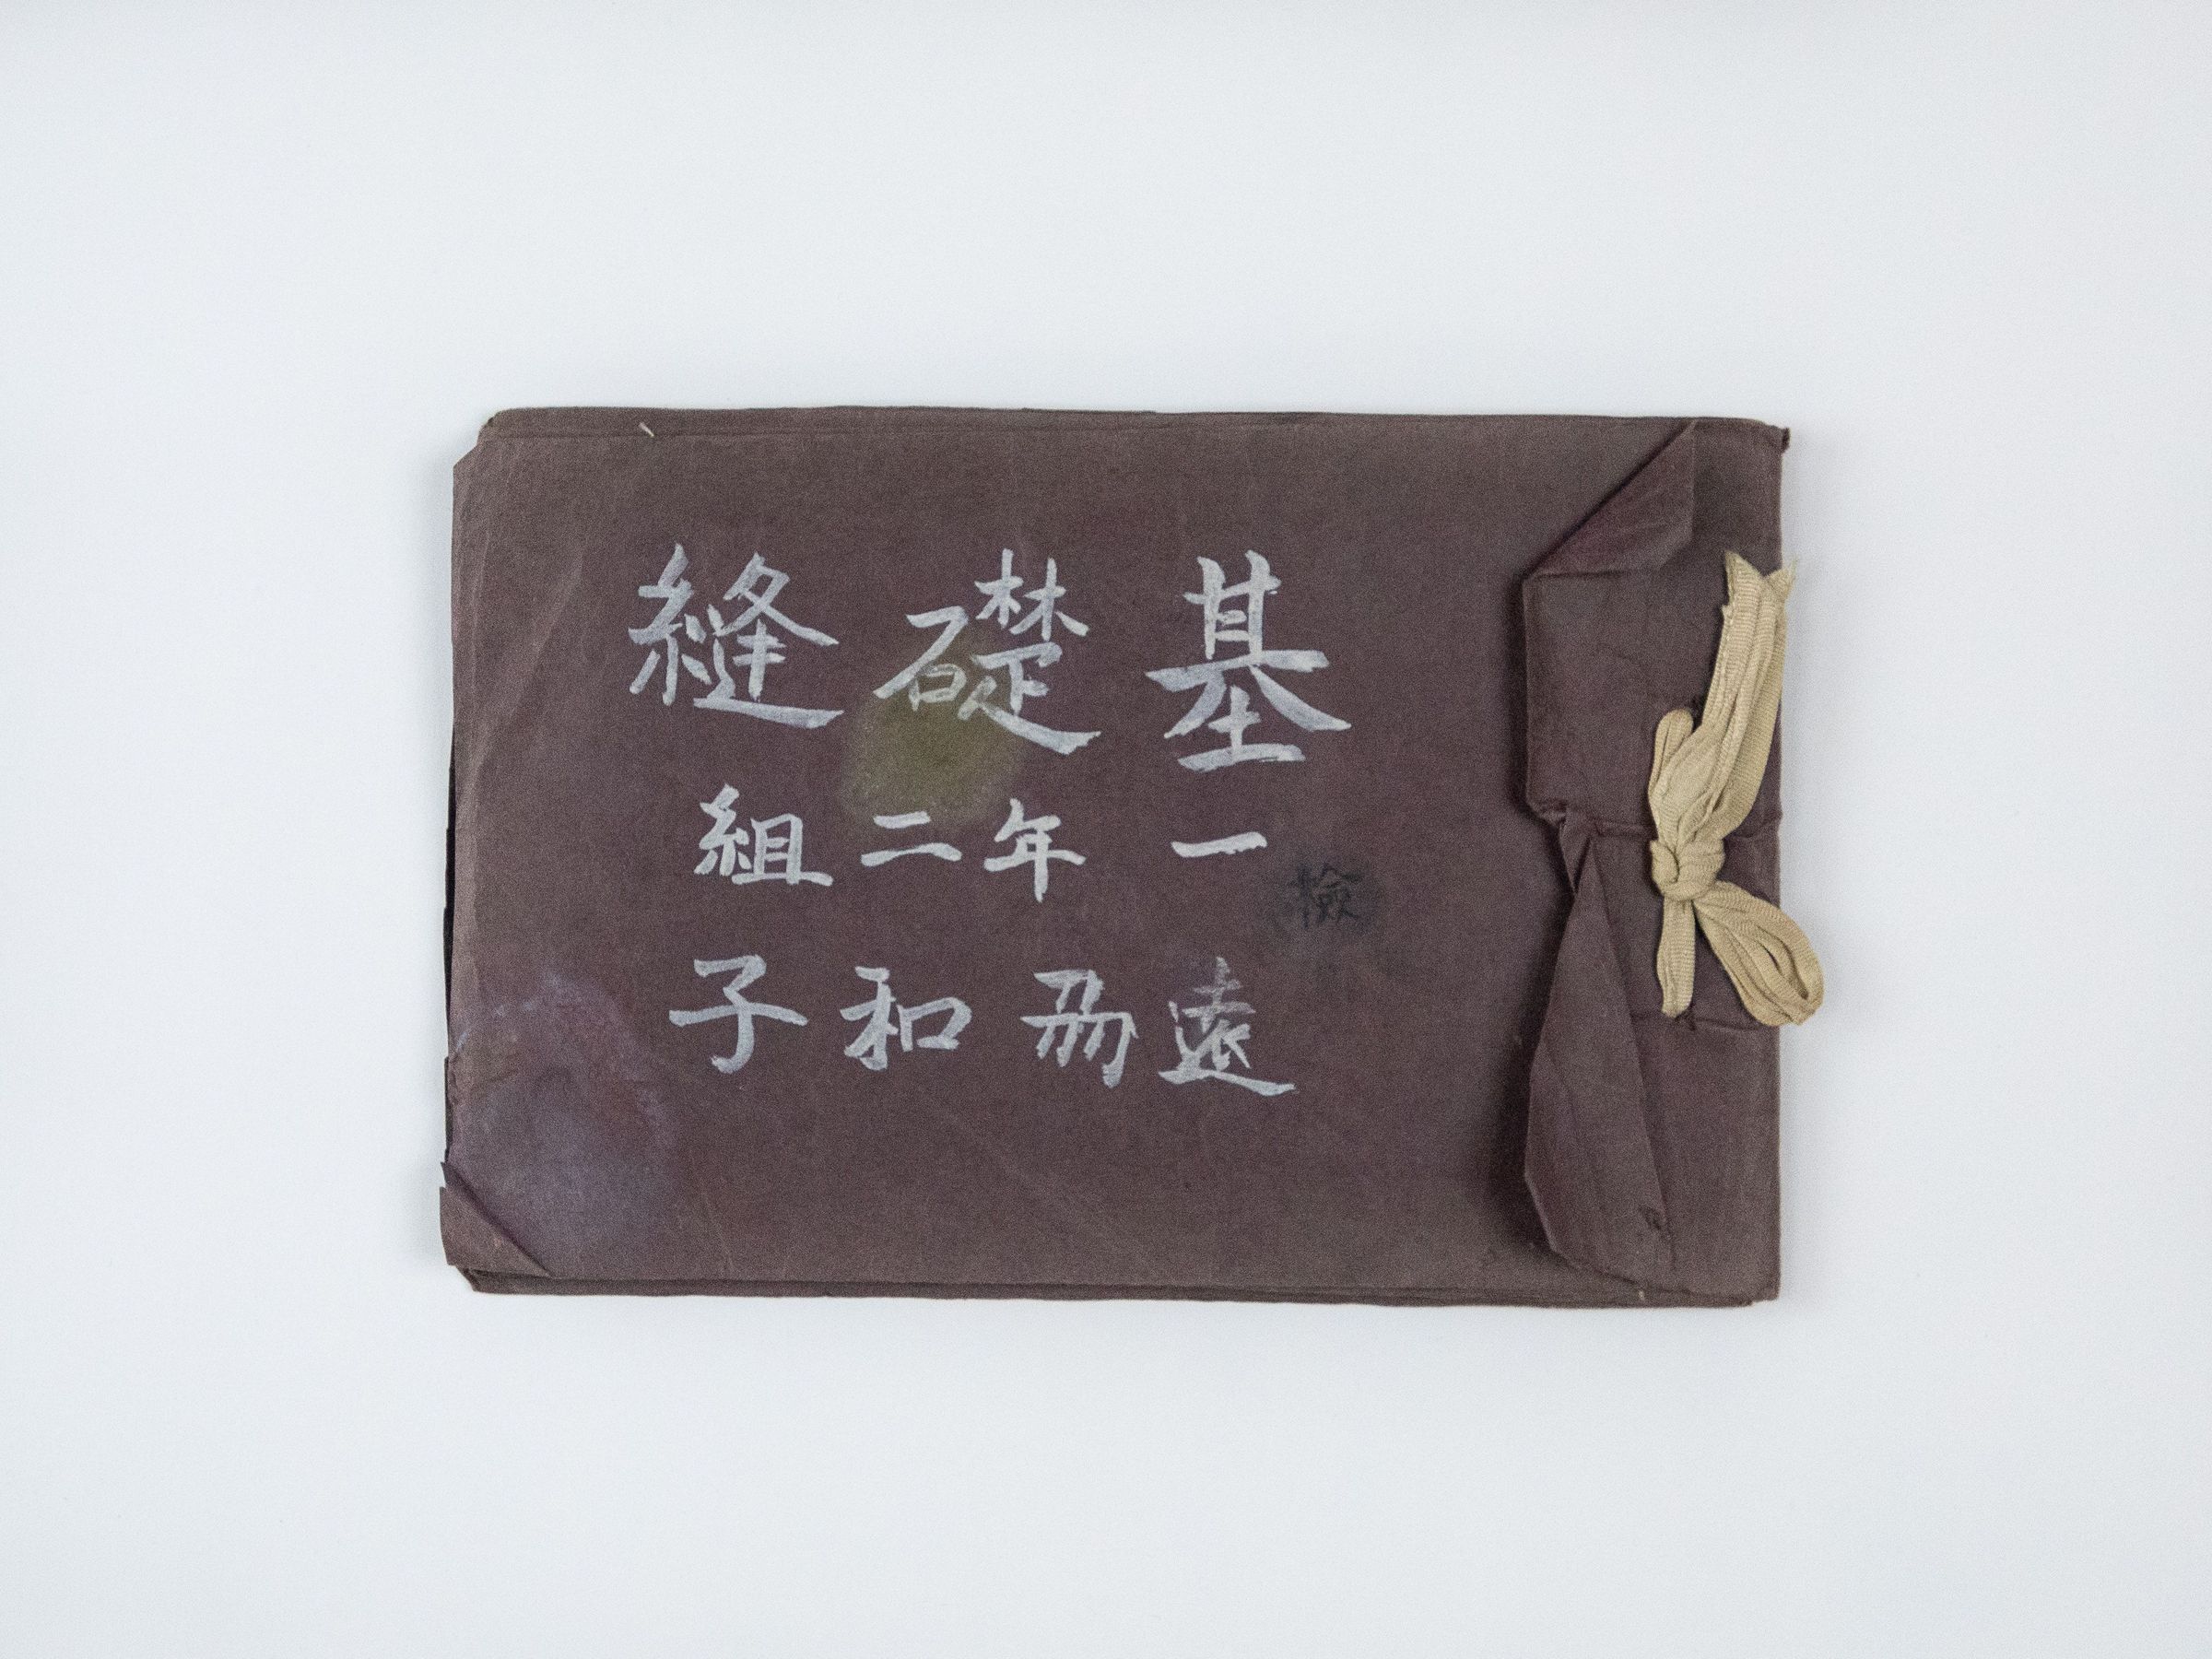 基礎縫
一年二組
檢
遠 和子